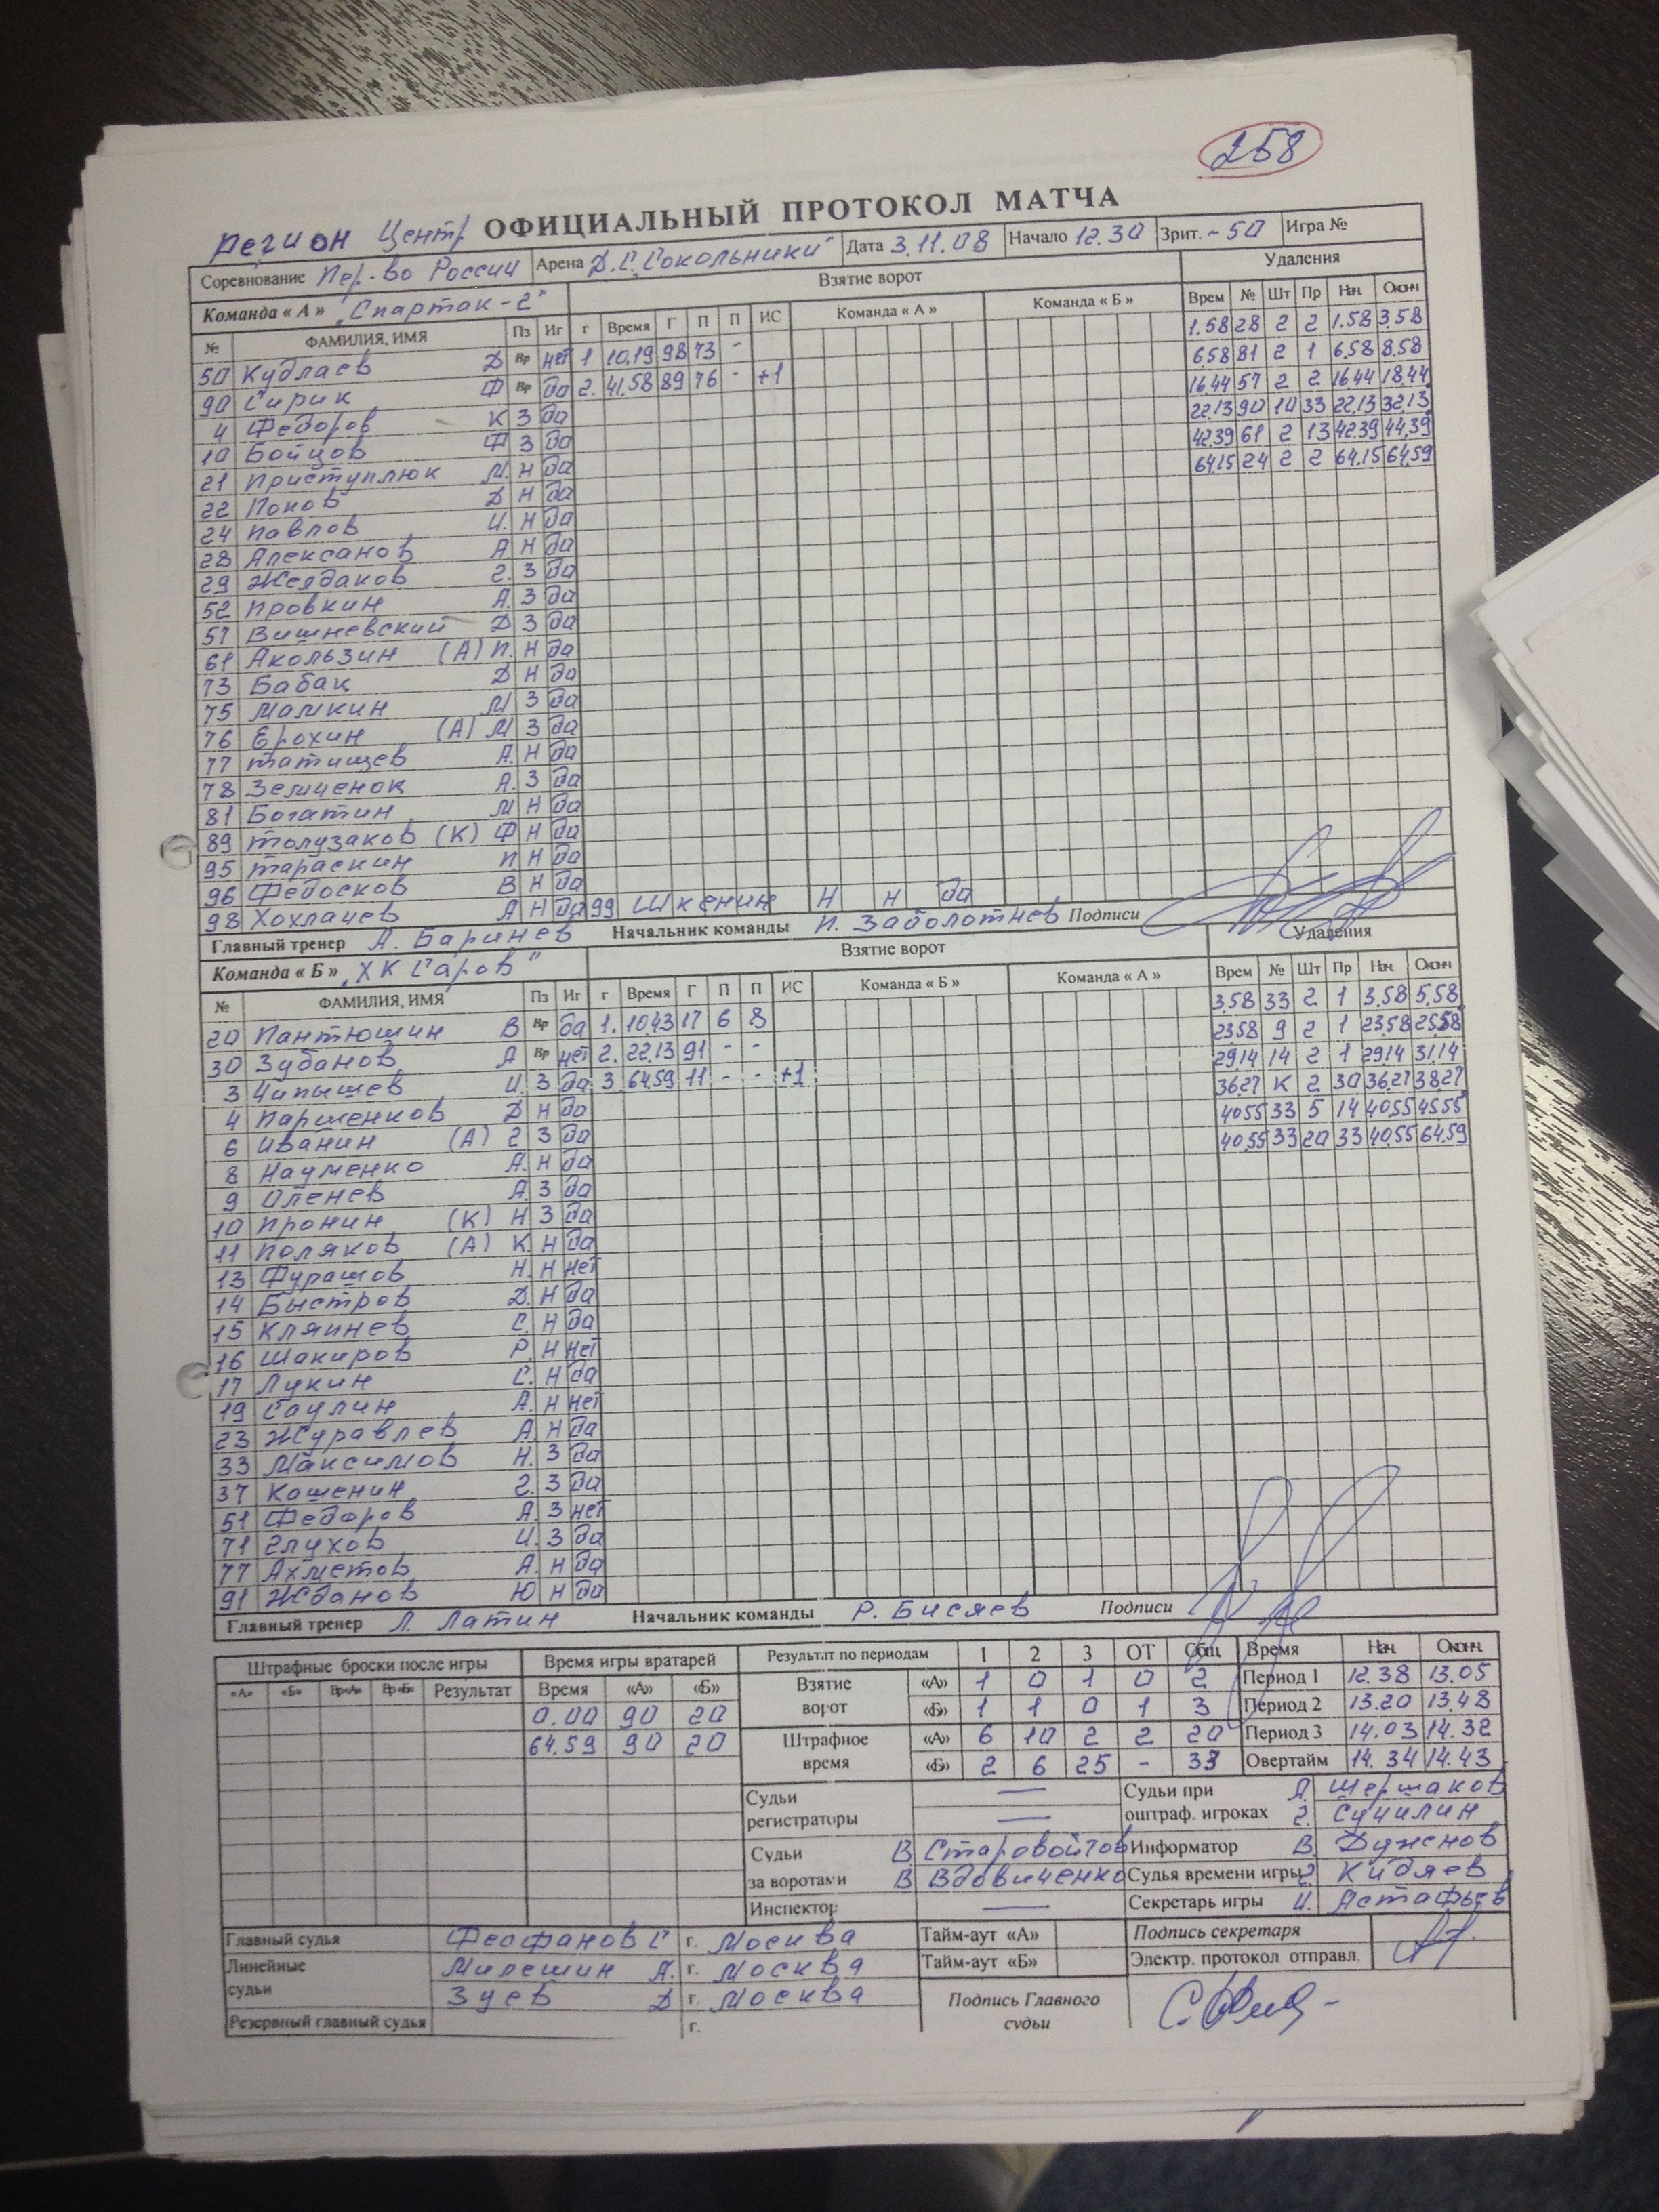 258
Регион Центр ОФИЦИАЛЬНЫЙ ПРОТОКОЛ МАТЧА
Соревнование Пер-во России Арена Д.С. Сокольники" Дата 3.11.08 Начало 12.30 Зрит. ~50 Игра №
Команда «А» "Спартак-2" Взятие ворот Удаления
№ ФАМИЛИЯ, ИМЯ Пз Иг г Время Г П П ИС Команда «А» Команда «Б» Врем № Шт Пр Нач. Оконч
50 Кудлаев Д Вр нет 1 10,19 98 73 - 1.58 28 2 2 1.58 3.58
90 Сирик Ф Вр да 2. 41.58 89 76 - +1 6.58 81 2 1 6.58 8.58
4 Федоров К З да 16.44 57 2 2 16.44 18.44
10 Бойцов Ф З да 22.13 90 10 33 22.13 32.13
21 Приступлюк М. Н да 42.39 61 2 13 42.39 44.39
22 Попов Д Н да 64.15 24 2 2 64.15 64.59
24 Павлов И. Н да
28 Алексанов А. Н да
29 Желдаков Г. З да
52 Провкин А. З да
57 Вишневский Д З да
61 Акользин (А) П. Н да
73 Бабак Д Н да
75 Мамкин М З да
76 Ерохин (А) М З да
77 Татищев А. Н да
78 Земченок А. З да
81 Богатин М Н да
89 Толузаков (К) Ф Н да
95 Тараскин П Н да
96 Федосков В Н да
98 Хохлачев А Н да 99 Шкенин Н Н да
Главный тренер А. Баринев Начальник команды П. Заболотнев Подписи
Команда «Б» "ХК Саров" Взятие ворот Удаления
№ ФАМИЛИЯ, ИМЯ Пз Иг г Время Г П П ИС Команда «Б» Команда «А» Врем № Шт Пр Нач. Оконч
20 Пантюшин В Вр да 1. 10.43 17 6 8 3.58 33 2 1 3.58 5.58
30 Зубанов А Вр нет 2. 22.13 91 - - 23.58 9 2 1 23.58 25.58
3 Чипышев И. З да 3. 64.59 11 - - +1 29.14 14 2 1 29.14 31.14
4 Паршенков Д Н да 36.27 К 2 30 36.27 38.27
6 Иванин (А) Г З да 40.55 33 5 14 40.55 45.55
8 Науменко А. Н да 40.55 33 20 33 40.55 64.59
9 Оленев А. З да
10 Пронин (К) Н З да
11 Поляков (А) К. Н да
13 Фурашов Н. Н нет
14 Быстров Д. Н да
15 Кляинев С. Н да
16 Шакиров Р. Н нет
17 Лукин С. Н да
19 Саулин А. Н нет
23 Журавлев А. Н да
33 Максимов Н. З да
37 Кошенин Г. З да
51 Федоров А. З нет
71 Глухов И. З да
77 Ахметов А. Н да
91 Жданов Ю Н да
Главный тренер Л. Латин Начальник команды Р. Бисяев Подписи
Штрафные броски после игры Время игры вратарей Результат по периодам 1 2 3 ОТ Общ Время Нач. Оконч.
«А» «Б» Вр«А» Вр«Б» Результат Время «А» «Б» Взятие ворот «А» 1 0 1 0 2 Период 1 12.38 13.05
0.00 90 20 «Б» 1 1 0 1 3 Период 2 13.20 13.48
64.59 90 20 Штрафное время «А» 6 10 2 2 20 Период 3 14.03 14.32
«Б» 2 6 25 - 33 Овертайм 14.34 14.43
Судьи регистраторы — Судьи при оштраф. игроках Л. Шершаков
— Г. Сучилин
Судьи за воротами В Старовойтов Информатор В. Дуженов
В Вдовиченко Судья времени игры Г. Кидяев
Инспектор — Секретарь игры И. Астафьев
Главный судья Феофанов С г. Москва Тайм-аут «А» Подпись секретаря
Линейные судьи Милешин А. г. Москва Тайм-аут «Б» Электр. протокол отправл.
Зуев Д г. Москва Подпись Главного судьи
Резервный главный судья г.